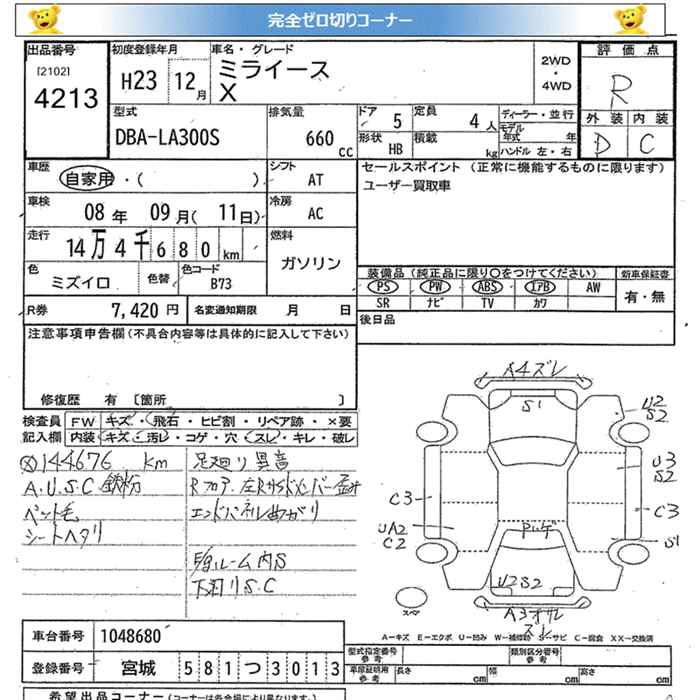 完全ゼロ切りコーナー
出品番号
[2102]
4213
初度登録年月
H23 12月
車名・グレード
ミライース
X
2WD
・
4WD
評価点
R
外装 内装
D C
型式
DBA-LA300S
排気量
660 cc
ドア 5
形状 HB
定員 4人
積載 kg
ディーラー・並行
モデル年式 年
ハンドル 左・右
車歴
自家用・( )
シフト
AT
車検
08年 09月(11日)
冷房
AC
走行
14万4千680km
燃料
ガソリン
色
ミズイロ
色替
色コード
B73
セールスポイント (正常に機能するものに限ります)
ユーザー買取車
装備品 (純正品に限り○をつけてください)
PS PW ABS エアB AW
SR ナビ TV カワ
新車保証書
有・無
R券 7,420円
名変通知期限 月 日
後日品
注意事項申告欄(不具合内容等は具体的に記入して下さい)
修復歴 有 〔箇所 〕
検査員記入欄
FW キズ・飛石・ヒビ割・リペア跡・×要
内装 キズ・汚レ・コゲ・穴・スレ・キレ・破レ
144676 km
A.U.S.C 鉄粉
ペット毛
シートヘタリ
足廻り異音
エンドパネルめがり
下廻りS.C
A4ズレ
S1
U2
S2
U3
S2
C3
C3
UA2
C2
S1
U2S2
スペア
A:キズ E:エクボ U:凹み W:補修跡 S:サビ C:腐食 XX:交換済
車台番号 1048680
登録番号 宮城 581つ3013
型式指定番号
参考
類別区分番号
参考
車庫証明用
参考
長さ 幅 高さ
cm cm cm
希望出品コーナー